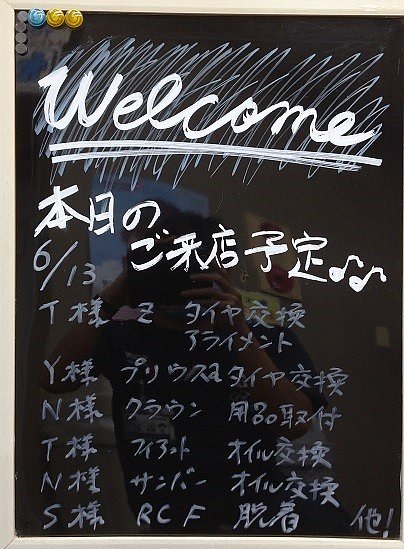 Welcome
本日の
ご来店予定♪♪
6/13
T様 Z タイヤ交換
アライメント
Y様 プリウスα タイヤ交換
N様 クラウン 用品取付
T様 フィアット オイル交換
N様 サンバー オイル交換
S様 RCF 脱着 他!